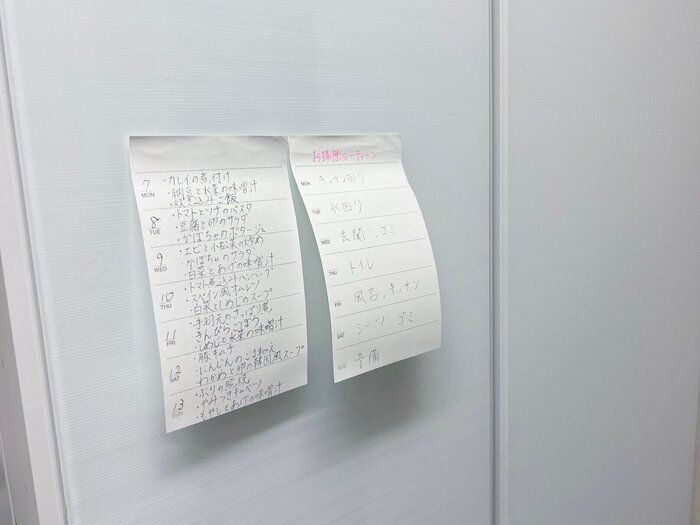 7
MON
・カレイの煮付け
・納豆と水菜の味噌汁
・炊き込みご飯
8
TUE
・トマトとツナのパスタ
・豆腐と卵のサラダ
・かぼちゃのポタージュ
9
WED
・エビと小松菜の炒め
・かぼちゃのサラダ
・白菜とあげの味噌汁
10
THU
・トマト煮込みハンバーグ
・スペイン風オムレツ
・白菜としめじのスープ
11
FRI
・手羽元のさっぱり煮
・きんぴらごぼう
・しめじと水菜の味噌汁
12
SAT
・豚キムチ
・にんじんのごまあえ
・わかめと卵の韓国風スープ
13
SUN
・ぶりの照焼
・やみつきキャベツ
・もやしとあげの味噌汁
お掃除ルーティーン
MON キッチン回り
TUE 水回り
WED 玄関、ゴミ
THU トイレ
FRI 風呂、キッチン
SAT シーツ、ゴミ
SUN 予備